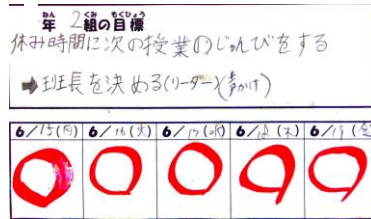 ねん くみ もくひょう
年 2組の目標
休み時間に次の授業のじゅんびをする
➡班長を決める(リーダー)(声かけ)
6/15(月) 6/16(火) 6/17(水) 6/18(木) 6/19(金)